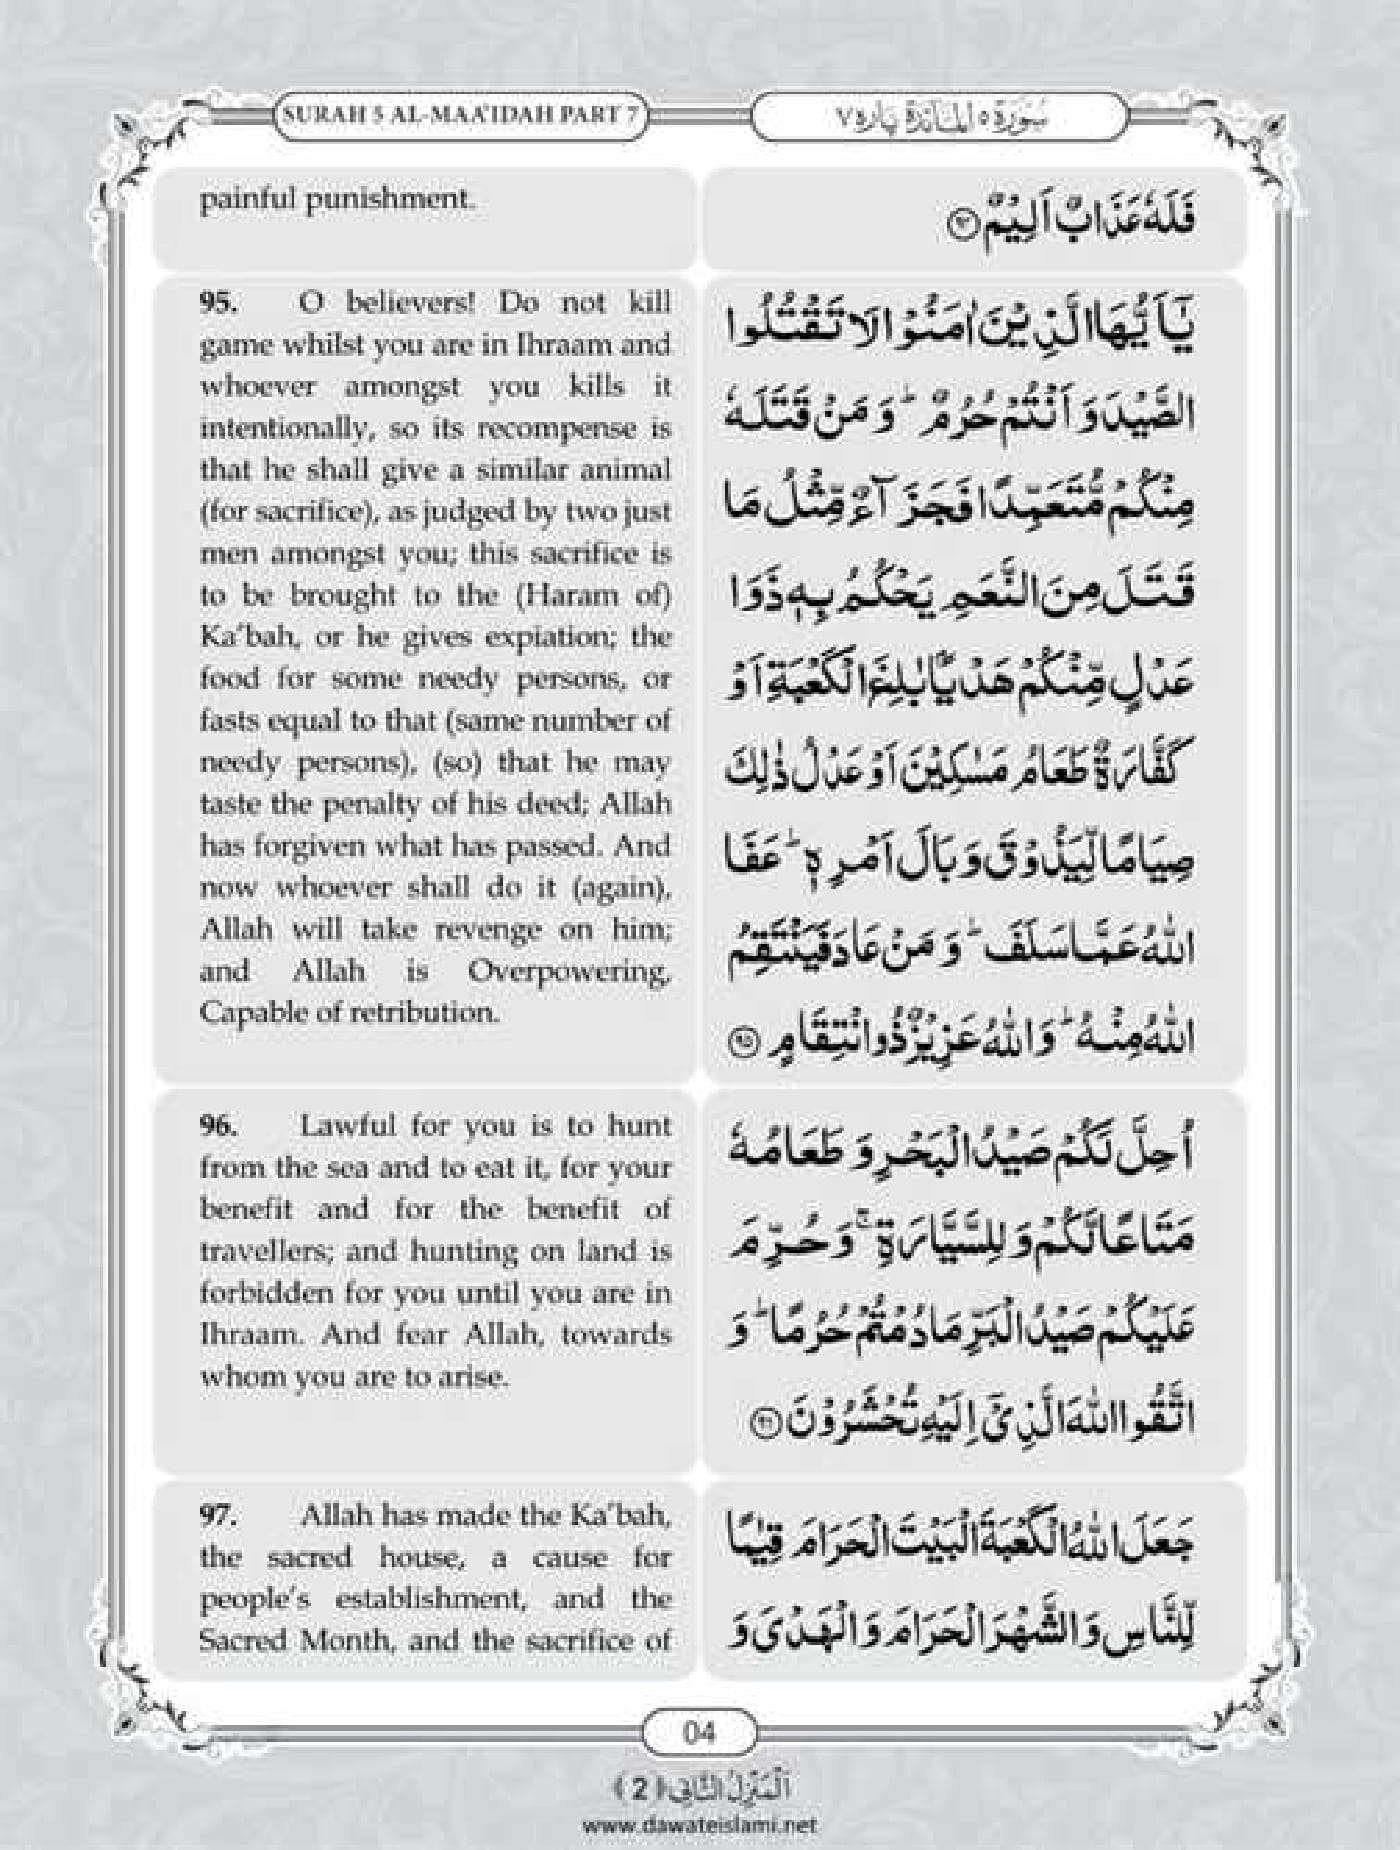 SURAH 5 AL-MAA'IDAH PART 7
سُوْرَة ٥ الْمَآئِدَة پَاره ٧
painful punishment.
فَلَهٗ عَذَابٌ اَلِیْمٌ ﴿۹۴﴾
95. O believers! Do not kill
game whilst you are in Ihraam and
whoever amongst you kills it
intentionally, so its recompense is
that he shall give a similar animal
(for sacrifice), as judged by two just
men amongst you; this sacrifice is
to be brought to the (Haram of)
Ka'bah, or he gives expiation; the
food for some needy persons, or
fasts equal to that (same number of
needy persons), (so) that he may
taste the penalty of his deed; Allah
has forgiven what has passed. And
now whoever shall do it (again),
Allah will take revenge on him;
and Allah is Overpowering,
Capable of retribution.
یٰۤاَیُّهَا الَّذِیْنَ اٰمَنُوْا لَا تَقْتُلُوا
الصَّیْدَ وَ اَنْتُمْ حُرُمٌ ؕ وَ مَنْ قَتَلَهٗ
مِنْكُمْ مُّتَعَمِّدًا فَجَزَآءٌ مِّثْلُ مَا
قَتَلَ مِنَ النَّعَمِ یَحْكُمُ بِهٖ ذَوَا
عَدْلٍ مِّنْكُمْ هَدْیًۢا بٰلِغَ الْكَعْبَةِ اَوْ
كَفَّارَةٌ طَعَامُ مَسٰكِیْنَ اَوْ عَدْلُ ذٰلِكَ
صِیَامًا لِّیَذُوْقَ وَ بَالَ اَمْرِهٖ ؕ عَفَا
اللّٰهُ عَمَّا سَلَفَ ؕ وَ مَنْ عَادَ فَیَنْتَقِمُ
اللّٰهُ مِنْهُ ؕ وَ اللّٰهُ عَزِیْزٌ ذُو انْتِقَامٍ ﴿۹۵﴾
96. Lawful for you is to hunt
from the sea and to eat it, for your
benefit and for the benefit of
travellers; and hunting on land is
forbidden for you until you are in
Ihraam. And fear Allah, towards
whom you are to arise.
اُحِلَّ لَكُمْ صَیْدُ الْبَحْرِ وَ طَعَامُهٗ
مَتَاعًا لَّكُمْ وَ لِلسَّیَّارَةِ ۚ وَ حُرِّمَ
عَلَیْكُمْ صَیْدُ الْبَرِّ مَا دُمْتُمْ حُرُمًا ؕ وَ
اتَّقُوا اللّٰهَ الَّذِیْۤ اِلَیْهِ تُحْشَرُوْنَ ﴿۹۶﴾
97. Allah has made the Ka'bah,
the sacred house, a cause for
people's establishment, and the
Sacred Month, and the sacrifice of
جَعَلَ اللّٰهُ الْكَعْبَةَ الْبَیْتَ الْحَرَامَ قِیٰمًا
لِّلنَّاسِ وَ الشَّهْرَ الْحَرَامَ وَ الْهَدْیَ وَ
04
اَلْمَنْزِلُ الثَّانِی ﴿2﴾
www.dawateislami.net